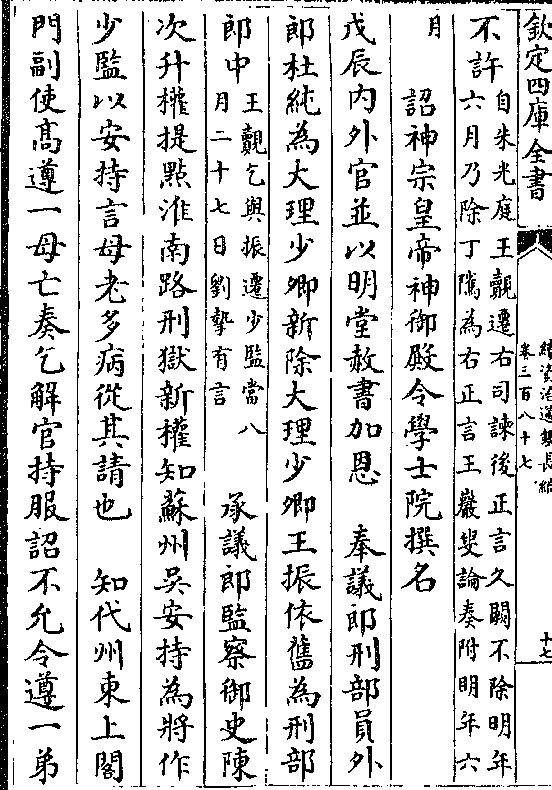 欽定四庫全書
續資治通鑑長編
卷三百八十七
十七
不許自朱光庭王覿遷右司諫後正言久闕不除明年
六月乃除丁隲為右正言王巖叟論奏附明年六
月
詔神宗皇帝神御殿令學士院撰名
戊辰内外官並以明堂赦書加恩 奉議郎刑部員外
郎杜純為大理少卿新除大理少卿王振依舊為刑部
郎中王覿乞與振遷少監當八
月二十七日劉摯有言 承議郎監察御史陳
次升權提點淮南路刑獄新權知蘇州吳安持為將作
少監以安持言母老多病從其請也 知代州東上閤
門副使髙遵一母亡奏乞解官持服詔不允令遵一弟